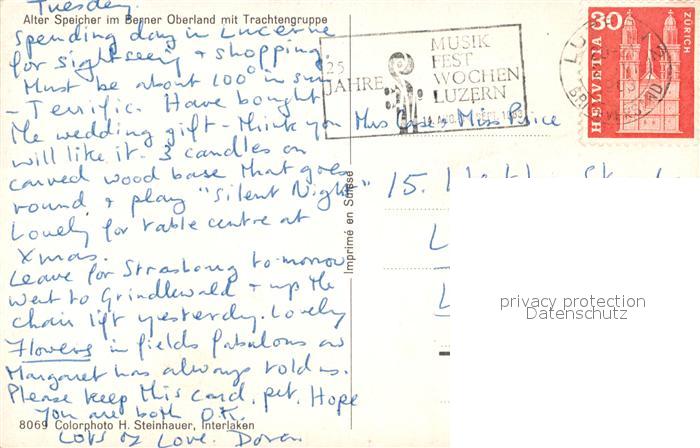 Tuesday.
Alter Speicher im Berner Oberland mit Trachtengruppe
Spending day in Lucerne
for sightseeing + shopping
Must be about 100° in sun
- Terrific. Have bought
the wedding gift - think you
will like it. 3 candles on
carved wood base that goes
round + play "Silent Night"
Lovely for table centre at
Xmas.
Leave for Strasbourg to-morrow
went to Grindlewald + up the
chair lift yesterday. Lovely
Flowers in fields fabulous as
Margaret has always told us.
Please keep this card, pet. Hope
You are both O.K.
8069 Colorphoto H. Steinhauer, Interlaken
Lots of Love. Doreen
Imprimé en Suisse
25
JAHRE
MUSIK
FEST
WOCHEN
LUZERN
30
HELVETIA
ZÜRICH
Miss Price
15.
privacy protection
Datenschutz